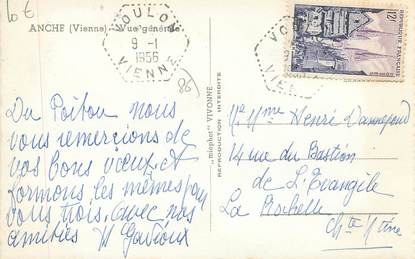 10€
ANCHE (Vienne) - Vue générale
VOULON
9 - 1
1956
VIENNE
12F
REPUBLIQUE FRANÇAISE
VOULON
VIENNE
86
Du Poitou nous
vous remercions de
vos bons vœux et
formons les mêmes pour
vous trois. avec nos
amitiés
"miophot" VIVONNE
REPRODUCTION INTERDITE
Mr Mme Henri
14 rue du Bastion
de L'Evangile
La Rochelle
Chte Mme